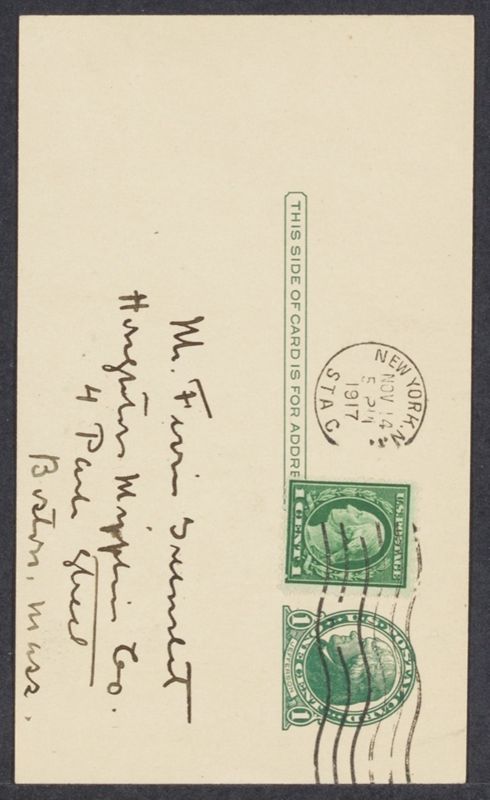 THIS SIDE OF CARD IS FOR ADDRE
NEW YORK, N.
NOV 14
5 PM
1917
STA C
U.S. POSTAGE
1 CENT 1
U.S. POSTAL CARD
ONE CENT
1 JEFFERSON 1
Mr. Ferris Greenslet
Houghton Mifflin Co.
4 Park Street
Boston, Mass.